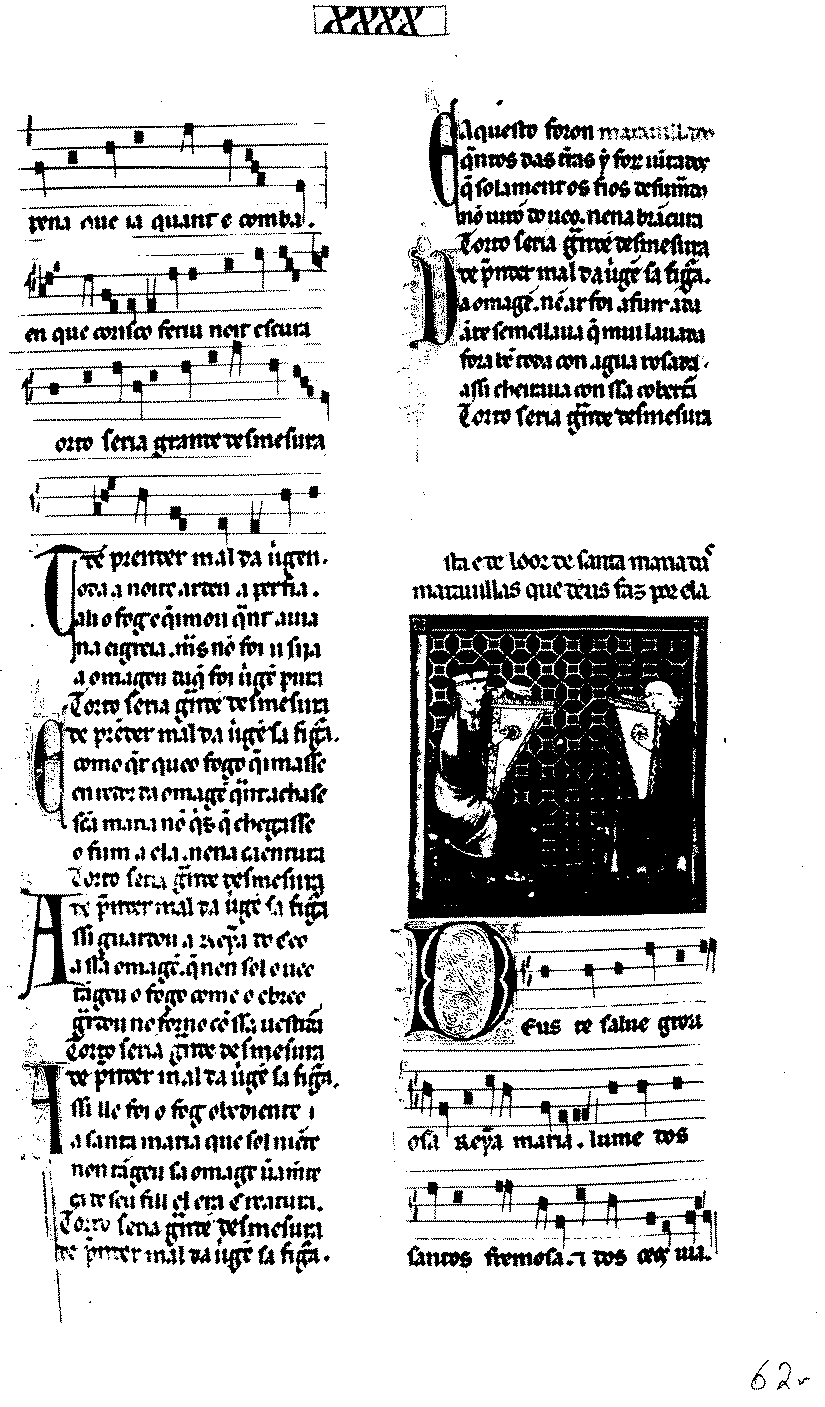 XXXX
pena que ia quant e comba.
en que corisco feriu noit escura
orto seria grante desmesura
de prender mal da uirgen.
oda a noite arteu a perfia.
ali o fog e q̃imou q̃nt auia
na eigreia. mais nō foi u siia
a omagen da q̃ foi uirgē pura
Torto seria g̃nde desmesura
de prēder mal da uirgē sa figa.
como q̃r que o fogo q̃imasse
en redor da omagē q̃nt achasse
sc̃a maria nō q̃s q̃ chegasse
o fum a ela. nen a caentura
Torto seria g̃nde desmesura
de p̃nder mal da uirgē sa figa
ssi guardou a reỹa do ceo
a ssa omagē. q̃ nen sol o ueo
tãgeu o fogo come o ebreo
g̃rdou no forno cō ssa uestidā
Torto seria g̃nde desmesura
de p̃nder mal da uirgē sa figa.
ssi lle foi o fog obediente
a santa maria que sol niēte
non tãgeu sa omagē
ca de seu fill el era creatura.
Torto seria g̃nde desmesura
de p̃nder mal da uirgē sa figa.
aquesto foron marauillados
q̃ntos das t̃ras ỹ foron uiṽdos
q̃ solament os fios
nō uirō do ueo. nen a brãcura
Torto seria g̃nde desmesura
de p̃nder mal da uirgē sa figa.
a omagē. nē ar foi afumada
ãte semellaua q̃ mui lauada
fora bē toda con agua rosada.
assi cheiraua con ssa cobert̃a
Torto seria g̃nde desmesura
sta e de loor de santa maria das
marauillas que deus faz por ela
Deus te salue grori
osa Reỹa maria. lume dos
santos fremosa. ⁊ dos ceos uia.
62v